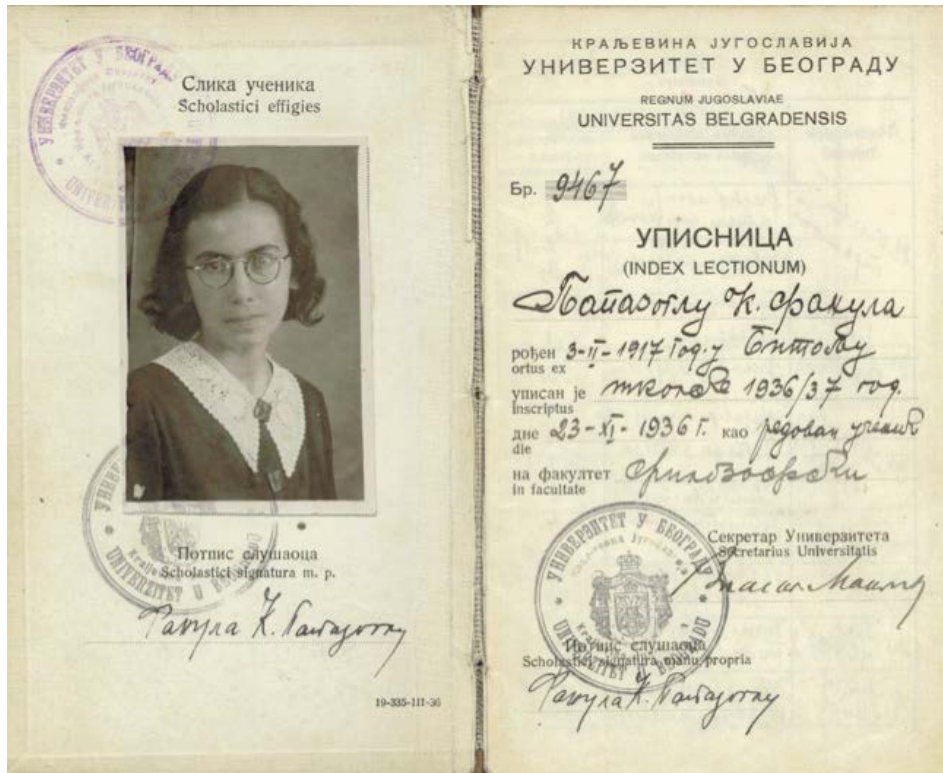 УНИВЕРЗИТЕТ У БЕОГРАДУ
Слика ученика
Scholastici effigies
УНИВЕРЗИТЕТ У БЕОГРАДУ
UNIVERZITET U BEOGRADU
Потпис слушаоца
Scholastici signatura m. p.
Фанула К. Папазоглу
19-335-III-36
КРАЉЕВИНА ЈУГОСЛАВИЈА
УНИВЕРЗИТЕТ У БЕОГРАДУ
REGNUM JUGOSLAVIAE
UNIVERSITAS BELGRADENSIS
Бр. 9467
УПИСНИЦА
(INDEX LECTIONUM)
Папазоглу К. Фанула
рођен 3-II-1917 год. у Битољу
ortus ex
уписан је школске 1936/37 год.
inscriptus
дне 23-XI-1936 г. као редован ученик
die
на факултет Филозофски
in facultate
Секретар Универзитета
Secretarius Universitatis
УНИВЕРЗИТЕТ У БЕОГРАДУ
UNIVERZITET U BEOGRADU
Потпис слушаоца
Scholastici signatura manu propria
Фанула К. Папазоглу